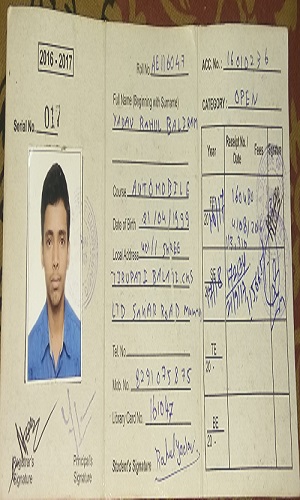 2016 - 2017
Serial No. 017
Registrar's Signature
Principal's Signature
Roll No. AE116047
Full Name (Beginning with Surname)
YADAV RAHUL BALIRAM
Course AUTOMOBILE
Date of Birth 01/04/1999
Local Address 401/1 SHREE
TIRUPATI BALAJI CHS
LTD SAKAR ROAD
Tel. No.
Mob. No. 8291075875
Library Card No. 161047
Student's Signature
ACC. No.: 16010236
CATEGORY: OPEN
Year
Receipt No. / Date
Fees
Signature
FE
20
SE
TE
20 -
BE
20 -